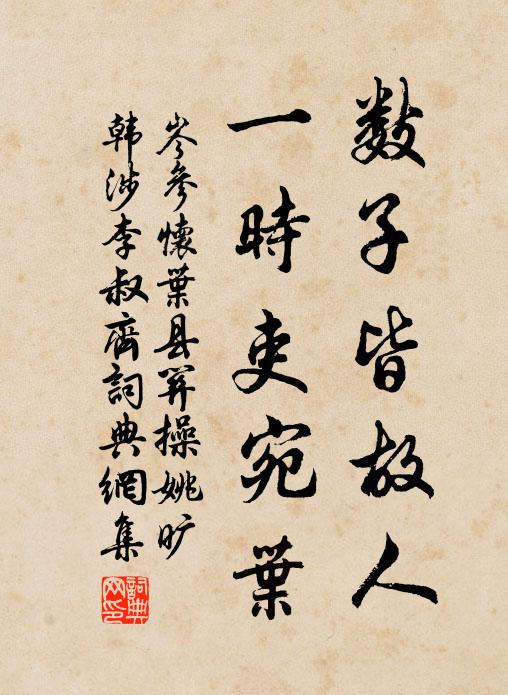 數子皆故人
一時吏宛葉
岑參懷葉县關操姚曠
韓涉李叔齊詞典網集
詞典
网印